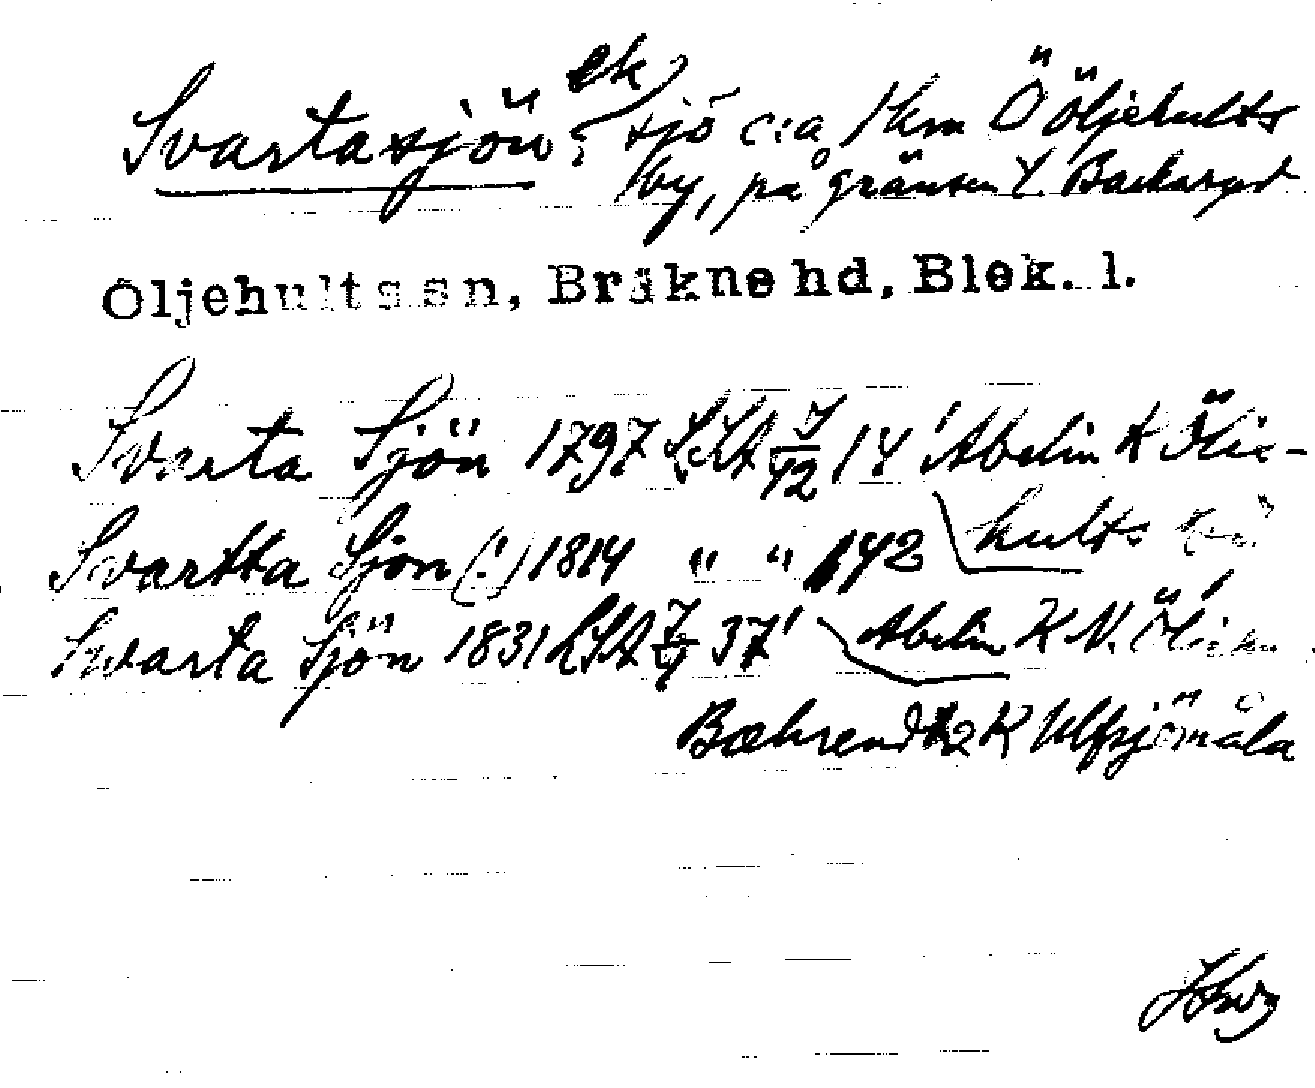 Svartasjön ek sjö c:a 1 km Ö Öljehults
by, på gränsen t. Backaryd
Öljehults sn, Bräkne hd, Blek. l.
Svarta Sjön 1797 LSA 7/42 14 Abelin K Ölie-
Svartta Sjön (!) 1814 " " 142 hults
Svarta Sjön 1831 LSA 37 Abelin K N.
Bæhrendtz K Ulfsjömåla